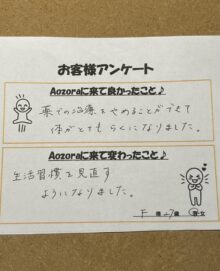 お客様アンケート
Aozoraに来て良かったこと♪
薬での治療をやめることができて
体がとてもらくになりました。
Aozoraに来て変わったこと♪
生活習慣を見直す
ようになりました。
F 様 27歳 男・女